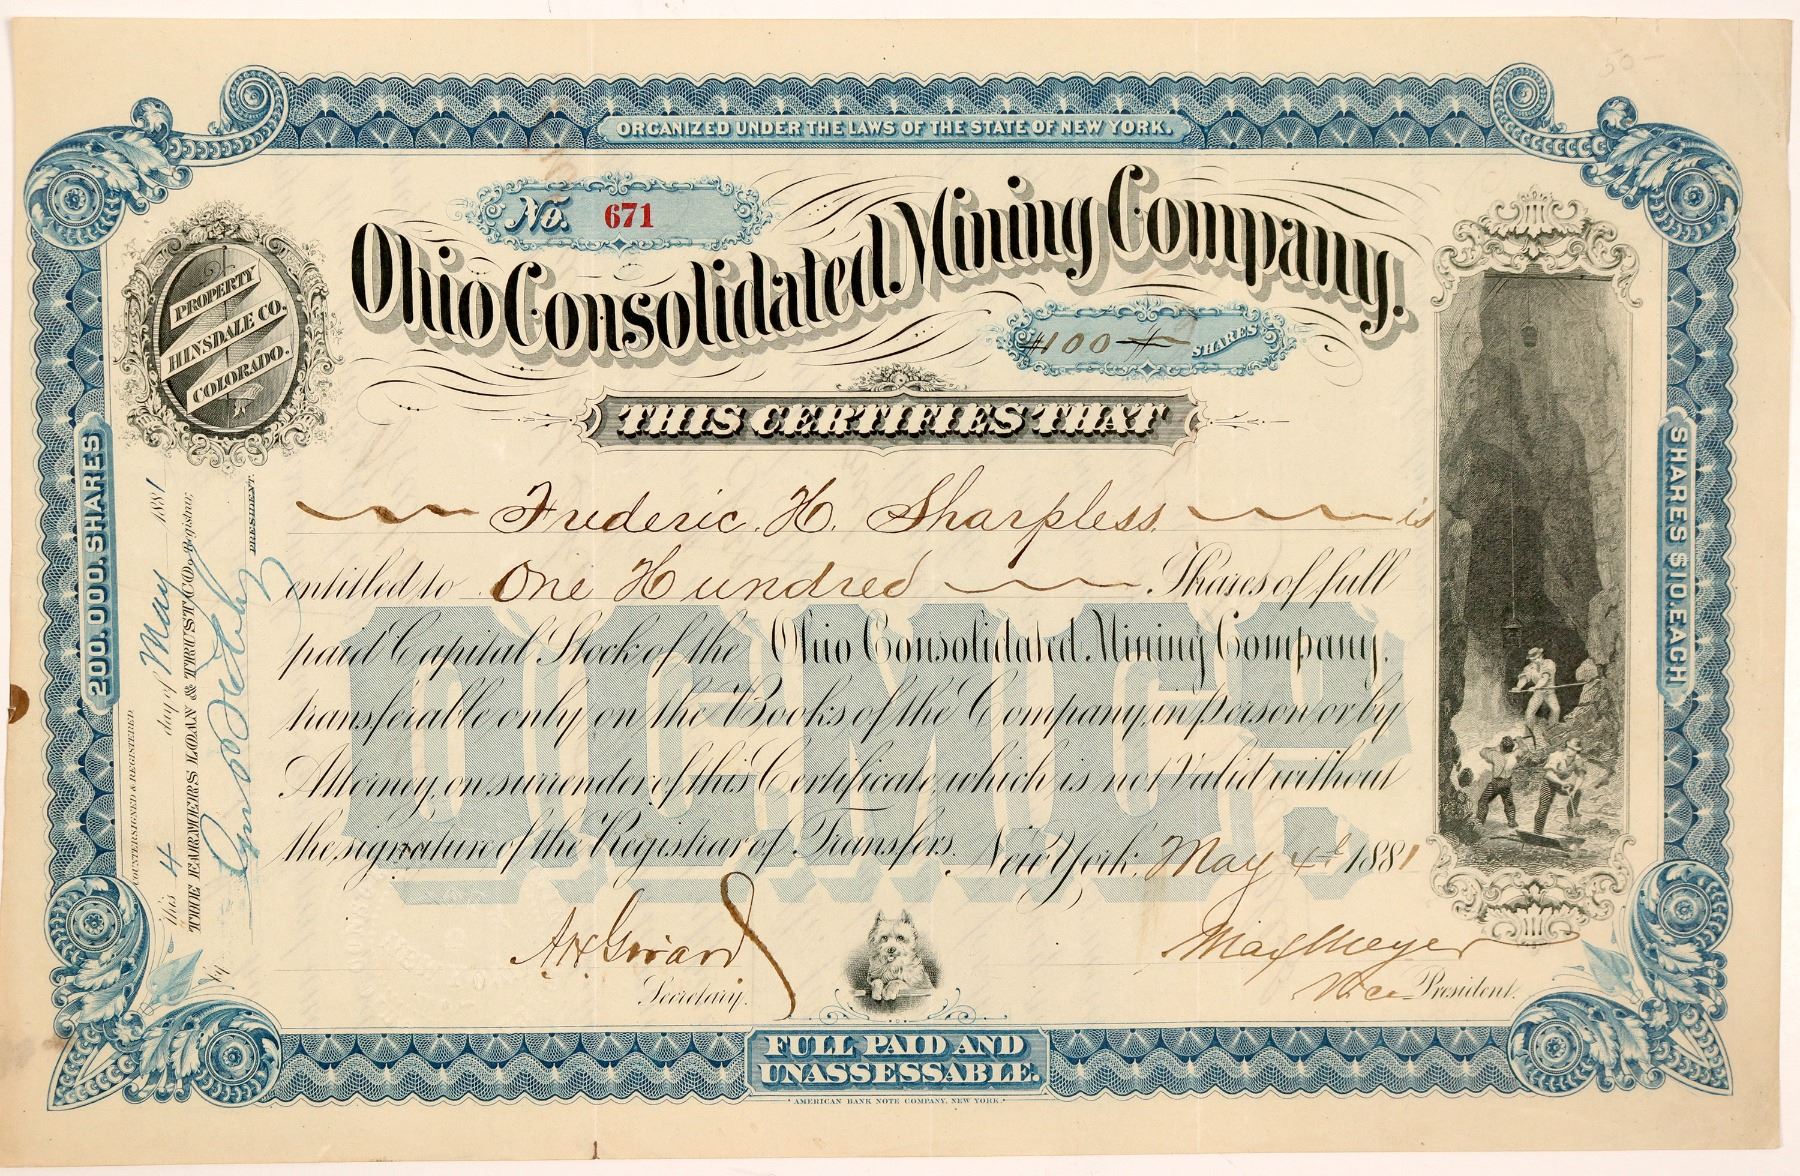 50-
ORGANIZED UNDER THE LAWS OF THE STATE OF NEW YORK.
No. 671
Ohio Consolidated Mining Company.
100 SHARES
PROPERTY
HINSDALE CO.
COLORADO.
THIS CERTIFIES THAT
Frederic. H. Sharpless. is
entitled to One Hundred Shares of full
paid Capital Stock of the Ohio Consolidated Mining Company,
transferable only on the Books of the Company, in person or by
Attorney, on surrender of this Certificate, which is not Valid without
the signature of the Registrar of Transfers. New York. May 4th 1881
O.C.M.Co.
A H Girard
Secretary.
Max Meyer
Vice President.
200,000. SHARES
SHARES $10. EACH
COUNTERSIGNED & REGISTERED
this 4 day of May 1881
THE FARMERS LOAN & TRUST CO. Registrar,
By
PRESIDENT.
FULL PAID AND
UNASSESSABLE.
AMERICAN BANK NOTE COMPANY, NEW YORK.